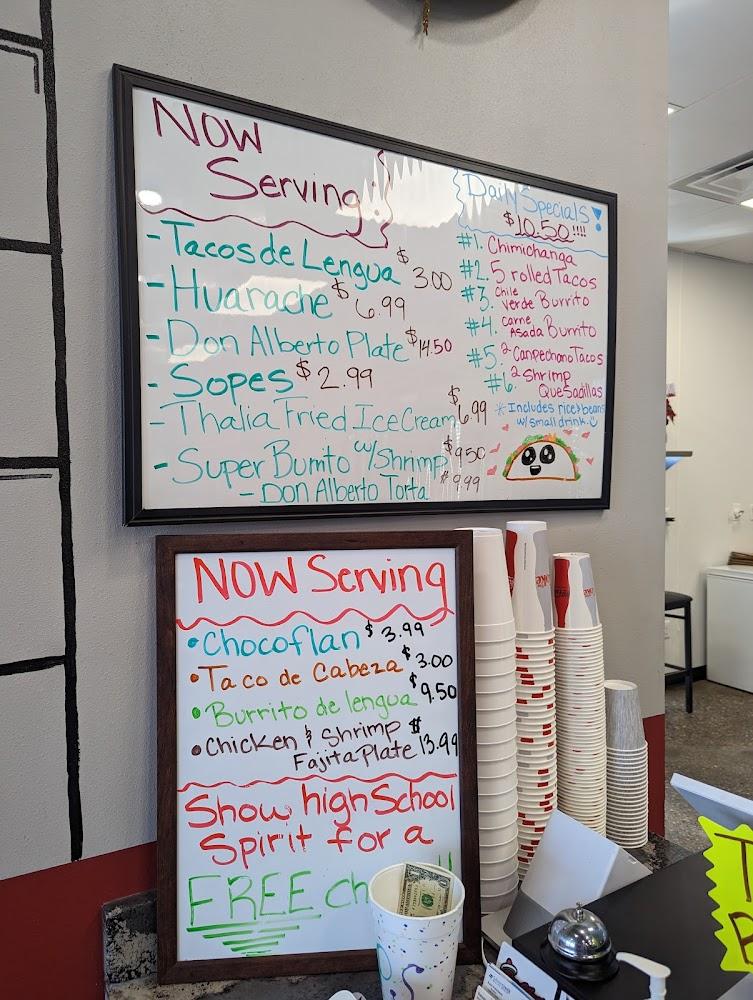 NOW
Serving
-Tacos de Lengua $3.00
-Huarache $6.99
-Don Alberto Plate $14.50
-Sopes $2.99
-Thalia Fried Ice Cream $6.99
-Super Burrito w/Shrimp $9.50
-Don Alberto Torta $9.99
Daily Specials!
$10.50!!!!
#1. Chimichanga
#2. 5 rolled Tacos
#3. Chile
Verde Burrito
#4. Carne
Asada Burrito
#5. 2 Campechano Tacos
#6. 2 Shrimp
Quesadillas
*Includes rice & beans
w/small drink.
NOW Serving
•Chocoflan $3.99
•Taco de Cabeza $3.00
•Burrito de lengua $9.50
•Chicken & Shrimp $13.99
Fajita Plate
Show high School
Spirit for a
FREE